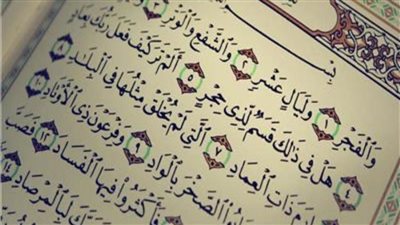 وَالْفَجْرِ ١ وَلَيَالٍ عَشْرٍ ٢ وَالشَّفْعِ وَالْوَتْرِ ٣
٤ هَلْ فِى ذَٰلِكَ قَسَمٌ لِّذِى حِجْرٍ ٥ أَلَمْ تَرَ كَيْفَ فَعَلَ رَبُّكَ بِعَادٍ
ذَاتِ الْعِمَادِ ٧ الَّتِى لَمْ يُخْلَقْ مِثْلُهَا فِى الْبِلَٰدِ ٨
الصَّخْرَ بِالْوَادِ ٩ وَفِرْعَوْنَ ذِى الْأَوْتَادِ ١٠
فَأَكْثَرُوا۟ فِيهَا الْفَسَادَ ١٢ فَصَبَّ
رَبَّكَ لَبِالْمِرْصَادِ ١٤